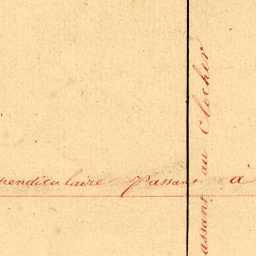 pendiculaire Passant à
assant au Clocher